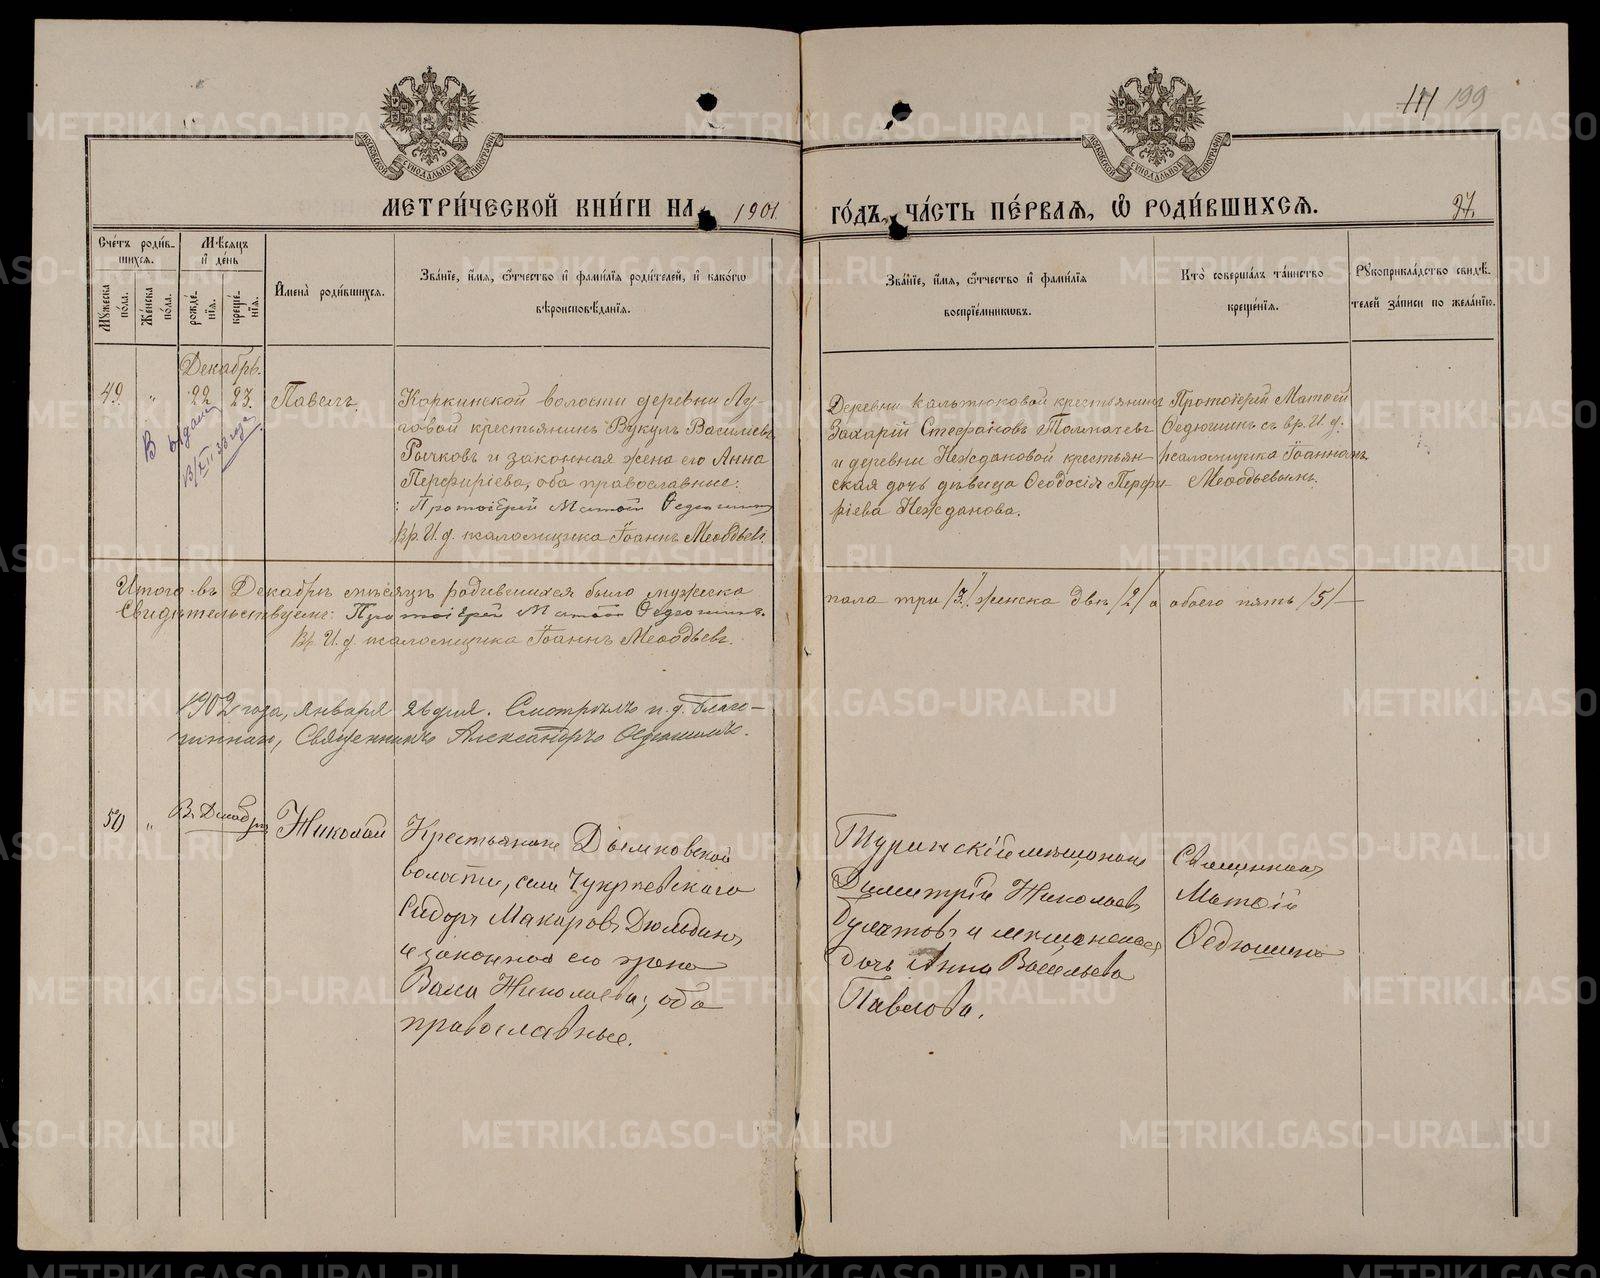 111 199
МЕТРИ́ЧЕСКОЙ КНИ́ГИ НА 1901 ГО́ДЪ, ЧА́СТЬ ПЕ́РВАѦ, Ѽ РОДИ́ВШИХСѦ.
27.
МОСКОВСКОЙ СѴНОДАЛЬНОЙ ТИПОГРАФІИ
МОСКОВСКОЙ СѴНОДАЛЬНОЙ ТИПОГРАФІИ
Сче́тъ роди́в-
шихсѧ.
Мꙋ́жеска
по́ла.
Же́нска
по́ла.
Мѣ́сѧцъ
и҆ де́нь
рожде́-
нїѧ.
креще́-
нїѧ.
И҆мена̀ роди́вшихсѧ.
Зва́нїе, и҆́мѧ, ѻ҆́тчество и҆ фами́лїѧ роди́телей, и҆ како́гѡ
вѣроисповѣ́данїѧ.
Зва́нїе, и҆́мѧ, ѻ҆́тчество и҆ фами́лїѧ
воспрїе́мникѡвъ.
Кто̀ соверша́лъ та́инство
креще́нїѧ.
Рꙋкоприкла́дство свидѣ́-
телей за́писи по жела́нїю.
Декабрь.
49. " 22 23. Павелъ.
Коркинской волости деревни Лу-
говой крестьянинъ Вукулъ Васильевъ
Рычковъ и законная жена его Анна
Перфиріева, оба православные:
: Протоіерей Матѳій Ѳедюшинъ
Вр. И. д. псаломщика Іоаннъ Меѳодьевъ.
Деревни Кальтюковой крестьянинъ
Захарій Стефановъ Толмачевъ
и деревни Неждановой крестьян-
ская дочь дѣвица Ѳеодосія Перфи-
ріева Нежданова.
Протоіерей Матѳей
Ѳедюшинъ съ вр. И. д.
псаломщика Іоанномъ
Меѳодьевымъ.
Итого въ Декабрѣ мѣсяцѣ родившихся было мужеска
пола три /3/ женска двѣ /2/ а обоего пять /5/ —
Свидѣтельствуемъ: Протоіерей Матѳій Ѳедюшинъ.
Вр. И. д. псаломщика Іоаннъ Меѳодьевъ.
1902 года, января 26 дня. Смотрѣлъ и. д. Благо-
чиннаго, Священникъ Александръ Ѳедюшинъ.
50 " Въ Декабрѣ Николай
Крестьянинъ Дымковской
волости, села Чукреевскаго
Сидоръ Макаровъ Дюльдинъ
и законная его жена
Николаева; оба
православные.
Туринскій мѣщанинъ
Димитрій Николаевъ
Булатовъ и мѣщанская
дочь Анна Васильева
Павлова.
Священникъ
Матѳій
Ѳедюшинъ